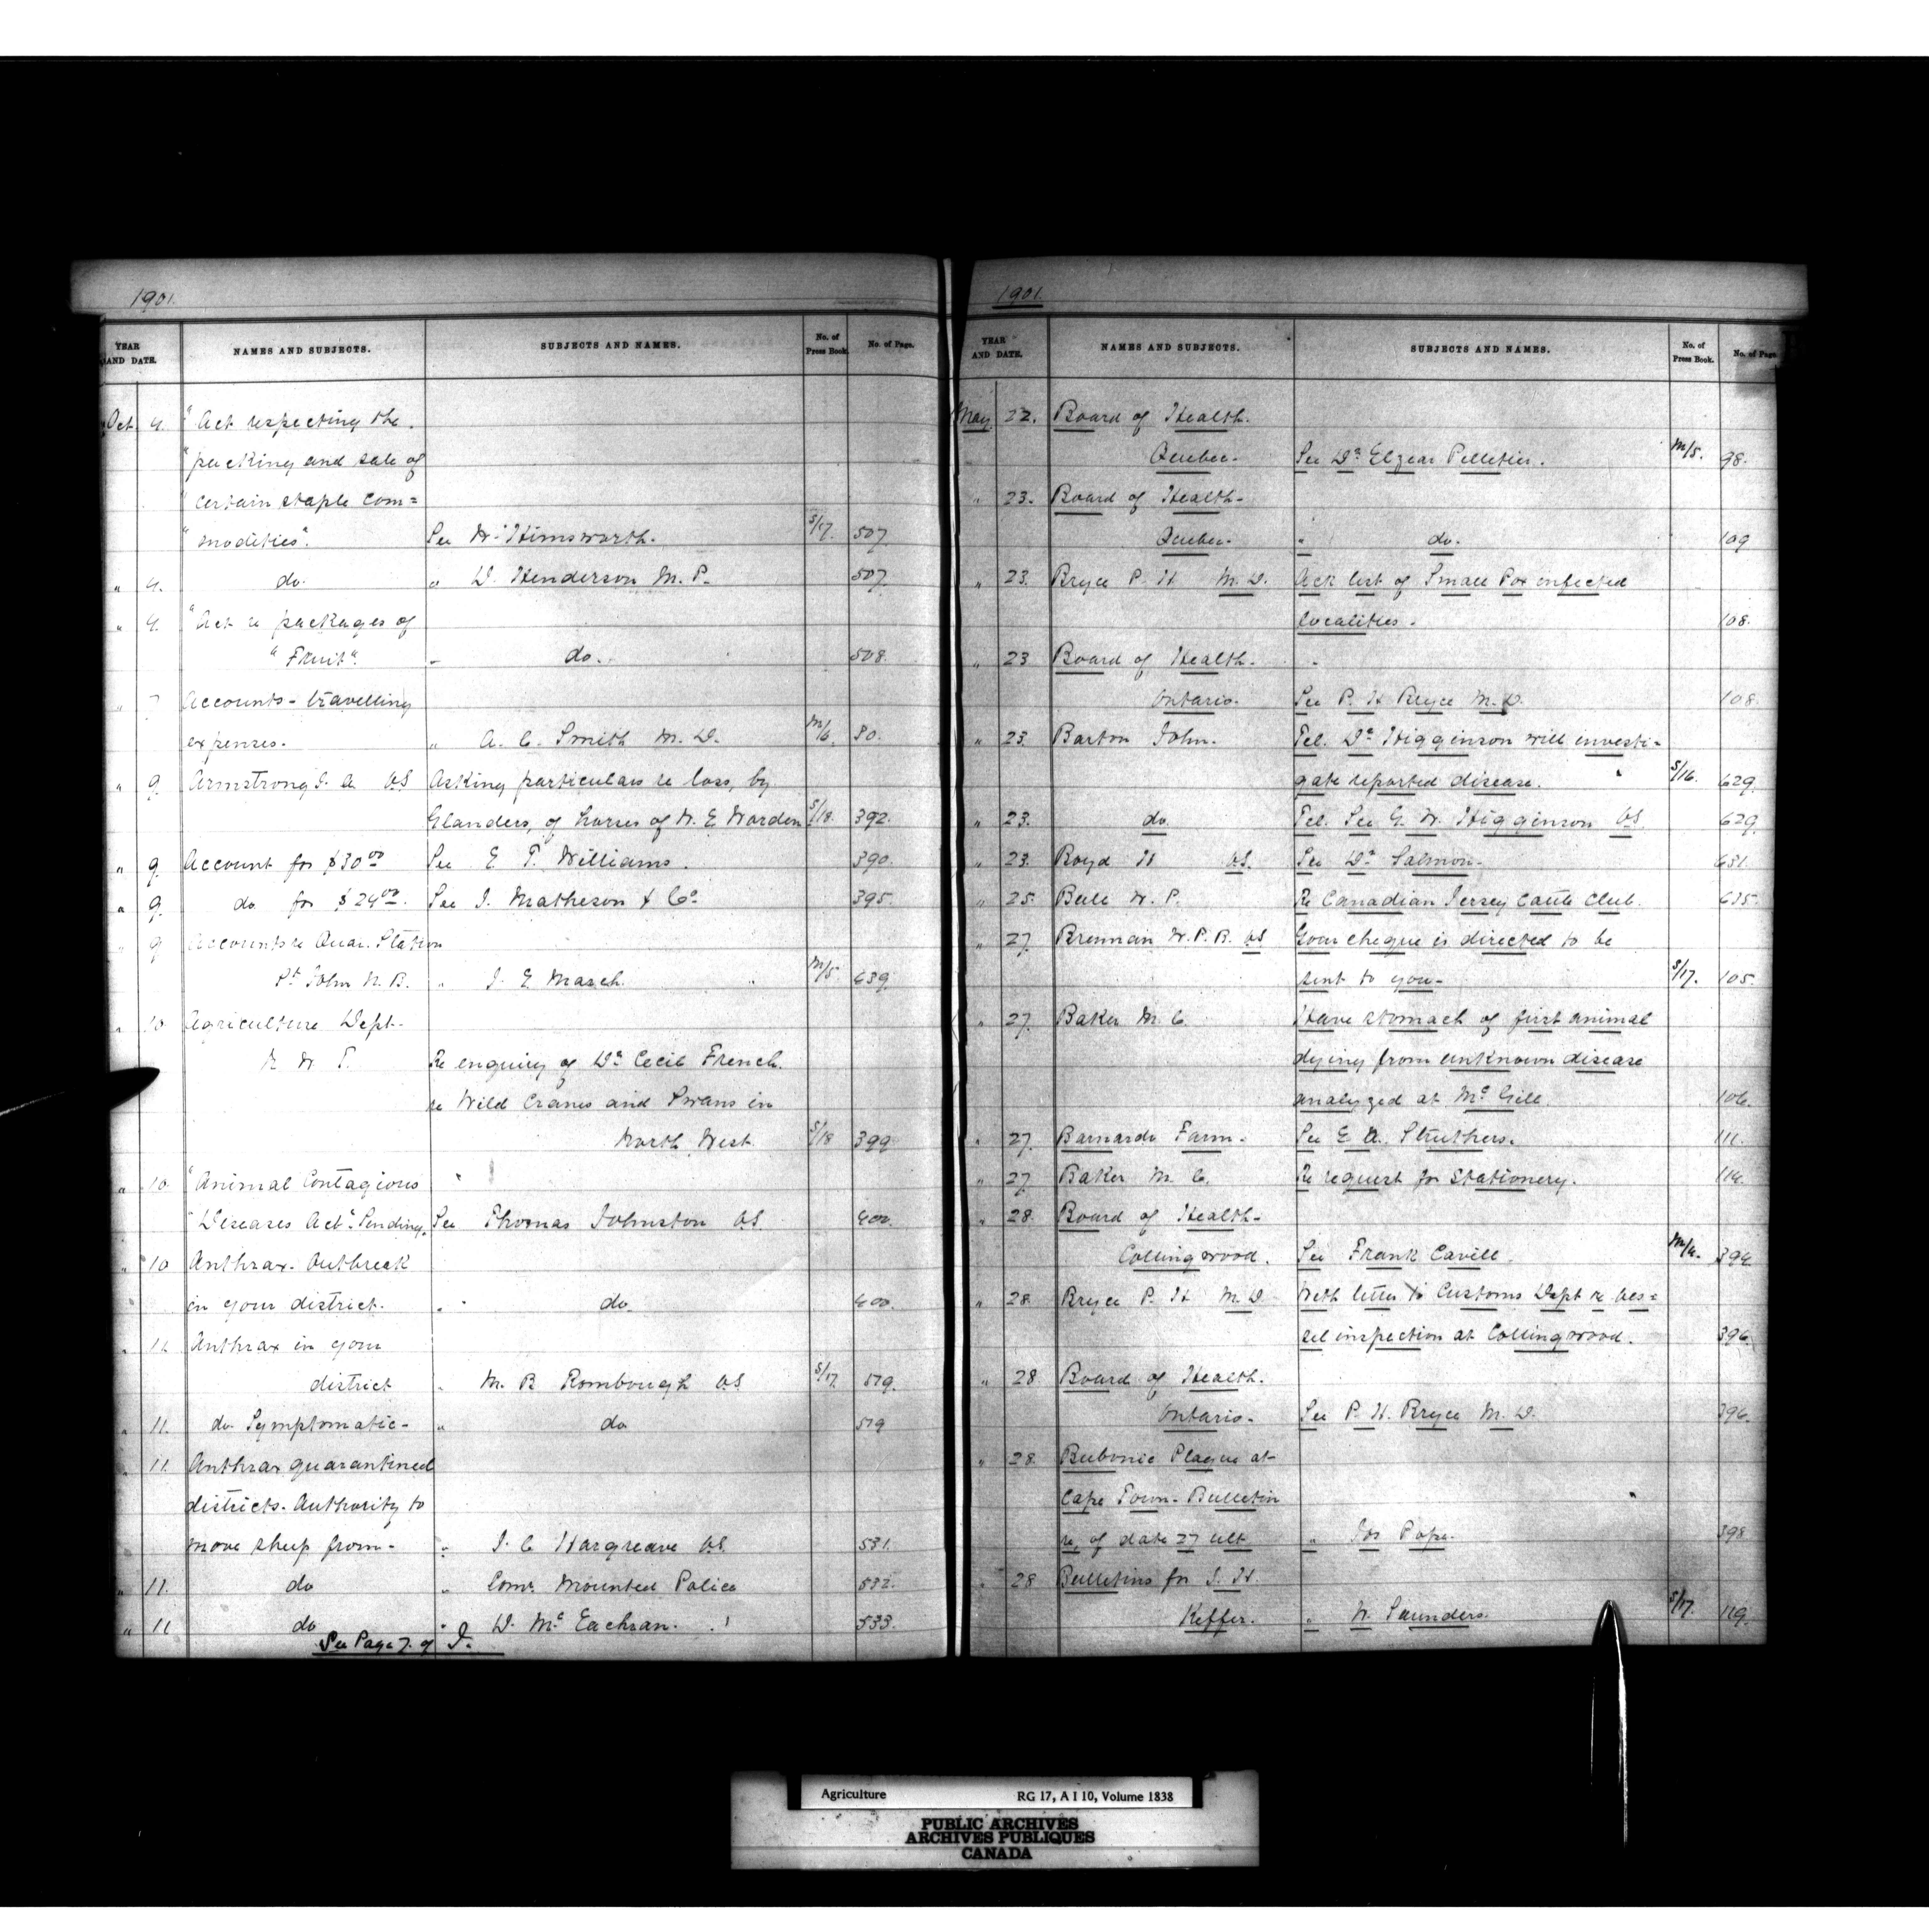 1901.
YEAR AND DATE. NAMES AND SUBJECTS. SUBJECTS AND NAMES. No. of Press Book. No. of Page.
Oct. 4. "Act respecting the
"packing and sale of
"certain staple com=
"modities". See W. Himsworth. S/17. 507.
" 4. do. " D. Henderson M.P. 507.
" 4. "Act re packages of
"Fruit". " do. 508.
" 7 Accounts - travelling
expenses. " A. C. Smith M.D. M/6. 80.
" 9. Armstrong VS Asking particulars re loss, by
Glanders, of horses of W. E. Warden S/18. 392.
" 9. Account for $30.00 See E. T. Williams. 390.
" 9. do for $24.00. See J. Matheson & Co. 395.
" 9 Accounts re Quar. Station
St John N.B. " J. E. March. M/5 639.
" 10 Agriculture Dept.
N. W. T. Re enquiry of Dr Cecil French.
re Wild Cranes and Swans in
North West. S/18 399
" 10. "Animal Contagious "
"Diseases Act". Sending. See Thomas Johnston VS. 400.
" 10 Anthrax. Outbreak
in your district. " do. 400.
" 11 Anthrax in your
district " M. B Rombough VS S/17. 519.
" 11. do Symptomatic - " do 519
" 11. Anthrax quarantined
districts. Authority to
move sheep from - " J. C Hargreave VS. 531.
" 11. do " Comr Mounted Police 532.
" 11 do " D. McEachran. 533.
See Page 7. of J.
1901.
YEAR AND DATE. NAMES AND SUBJECTS. SUBJECTS AND NAMES. No. of Press Book. No. of Page.
May 22. Board of Health.
Quebec. See Dr Elzear Pelletier. M/5. 98.
" 23. Board of Health -
Quebec. " do. 109
" 23. Bryce P. H M.D. Ack list of Small Pox infected
localities. 108.
" 23 Board of Health.
Ontario. See P. H Bryce M.D. 108.
" 23. Barton John. Tel. Dr Higginson will investi-
gate reported disease. S/16. 629.
" 23. do Tel. See G. W. Higginson VS. 629.
" 23. Boyd H VS. See Dr Salmon. 631.
" 25. Bull W. P. Re Canadian Jersey Cattle Club. 635.
" 27. Brennan W.P.B. VS Your cheque is directed to be
sent to you - S/17. 105.
" 27. Baker M. C. Have stomach of first animal
dying from unknown disease
analyzed at McGill. 106.
" 27. Barnardo Farm. See E. A. Struthers. 111.
" 27 Baker M. C. Re request for stationery. 114.
" 28. Board of Health -
Collingwood. See Frank Cavill. M/4. 394.
" 28. Bryce P. H M.D. With letter to Customs Dept re ves=
sel inspection at Collingwood. 396.
" 28 Board of Health.
Ontario. See P. H. Bryce M.D. 396.
" 28. Bubonic Plague at
Cape Town - Bulletin
re, of date 27 ult " Jos Pope. 398
" 28 Bulletins for J. H.
Keffer. " W. Saunders. S/17. 119.
Agriculture RG 17, A I 10, Volume 1838
PUBLIC ARCHIVES
ARCHIVES PUBLIQUES
CANADA